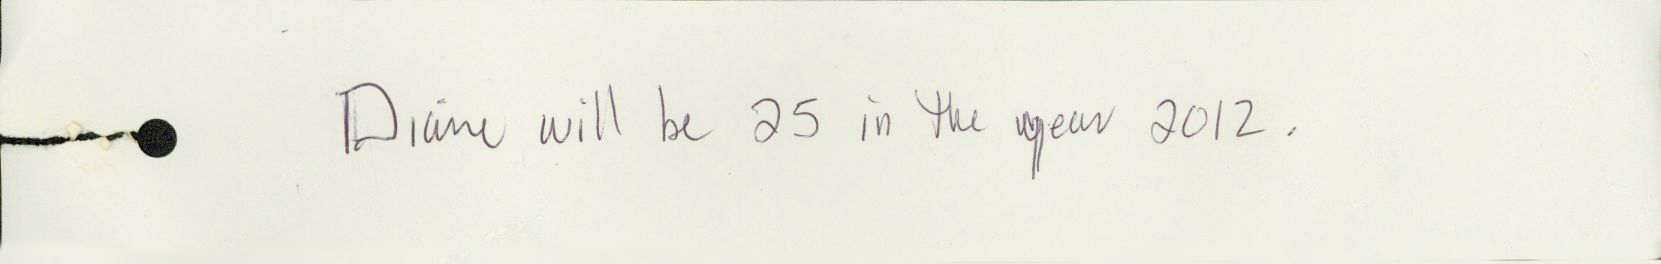 Diane will be 25 in the year 2012.